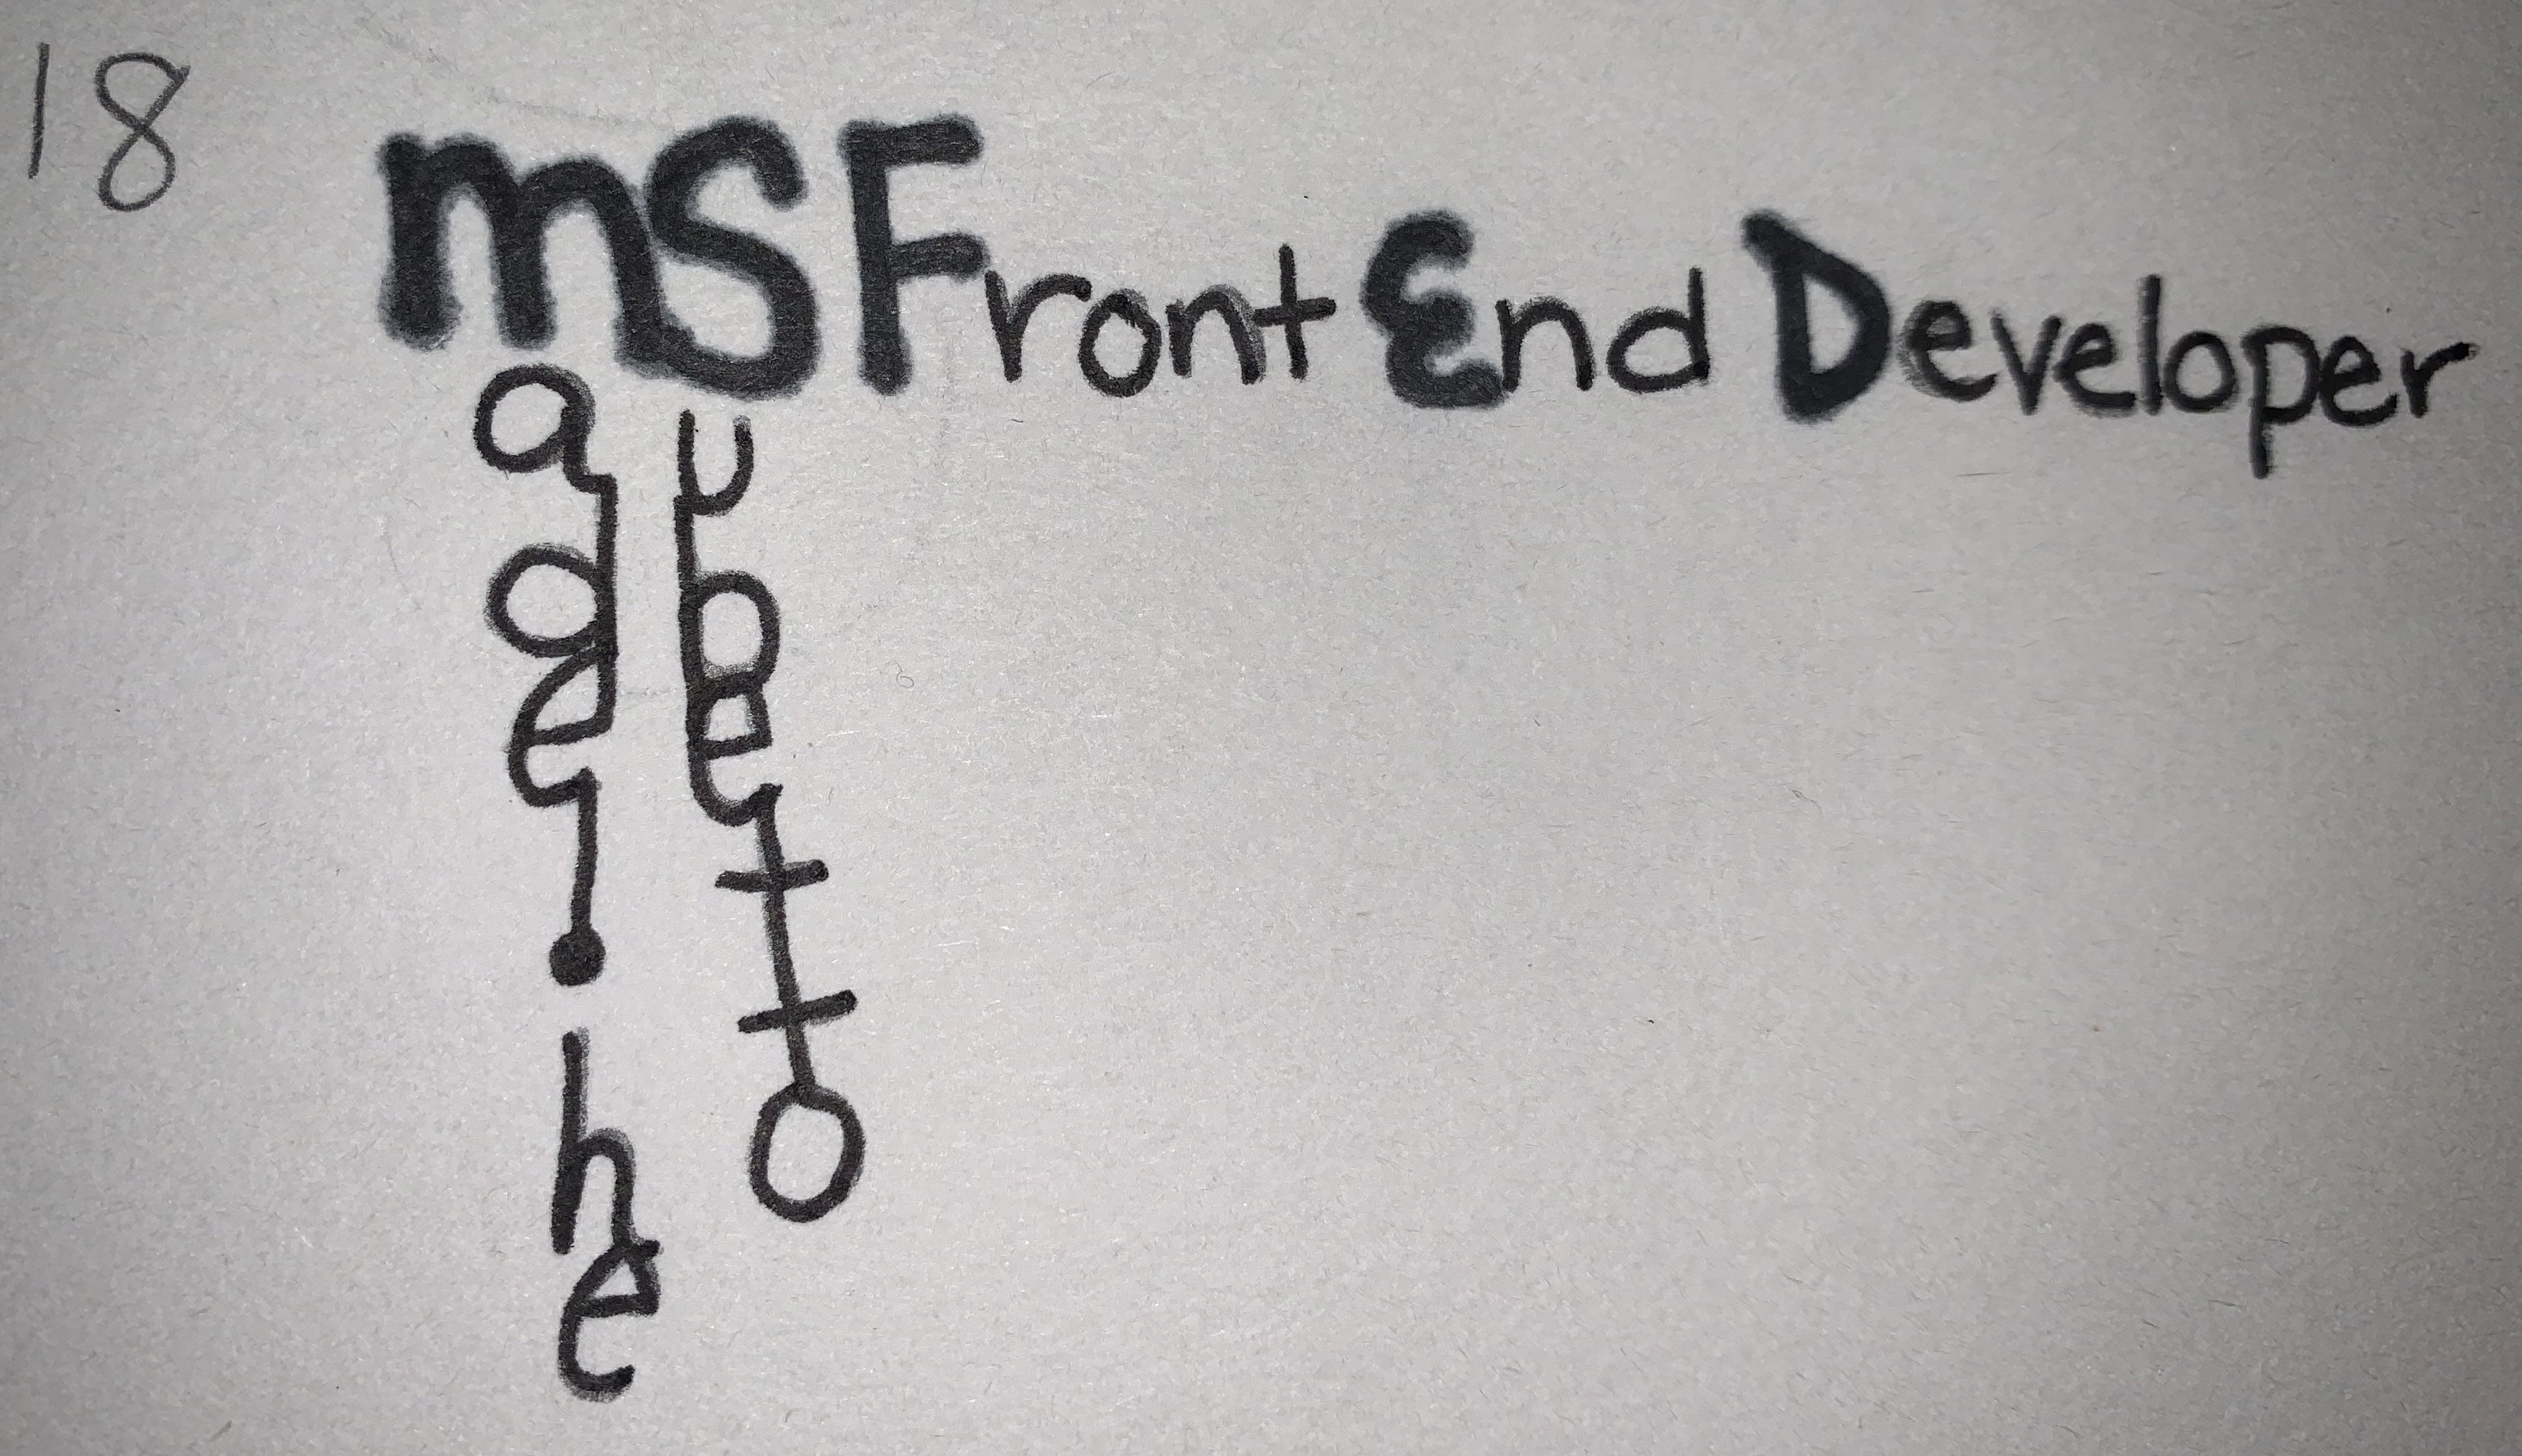 18
mSFront End Developer
adeline
ubetto